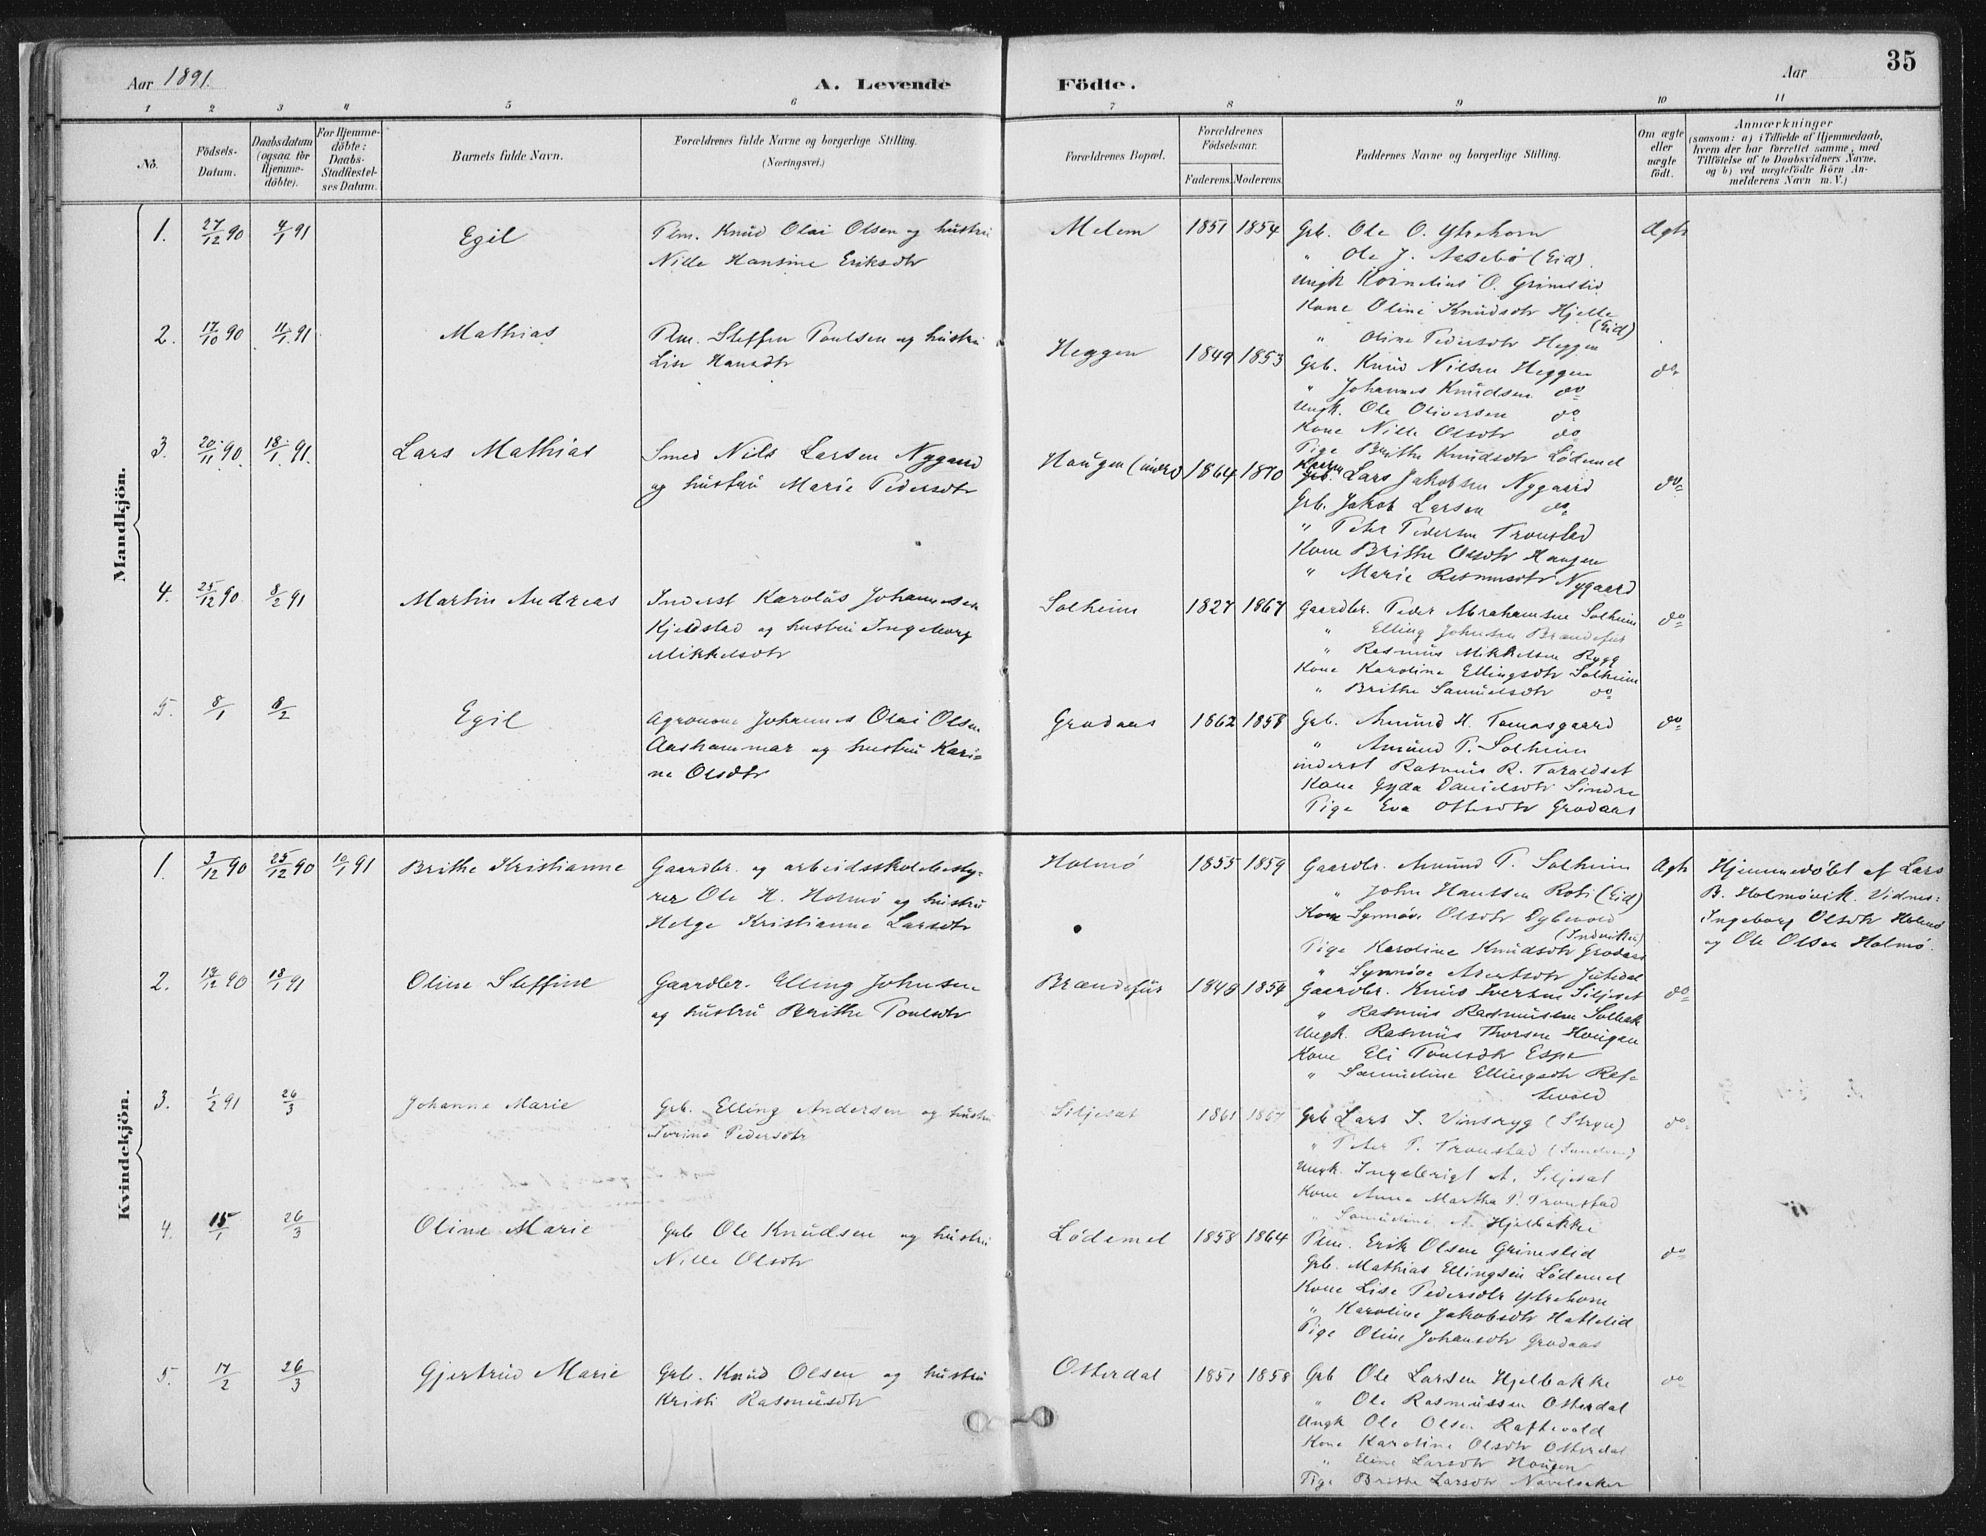 Aar 1891.
A. Levende Födte.
Aar
35
1 2 3 4 5 6 7 8 9 10 11
No.
Födsels-Datum.
Daabsdatum (ogsaa for Hjemme-döbte).
For Hjemme-döbte: Daabs-Stadfæstel-ses Datum.
Barnets fulde Navn.
Forældrenes fulde Navne og borgerlige Stilling.
(Næringsvei.)
Forældrenes Bopæl.
Forældrenes Födselsaar.
Faderens. Moderens.
Faddernes Navne og borgerlige Stilling.
Om ægte eller uægte födt.
Anmærkninger
(saasom: a) i Tilfælde af Hjemmedaab,
hvem der har forrettet samme, med
Tilföielse af to Daabsvidners Navne,
og b) ved uægtefödte Börn An-
melderens Navn m. V.)
Mandkjön.
1. 27/12 90 4/1 91 Egil
Plm. Knud Olai Olsen og hustru
Nille Hansine Eriksdtr
Melem 1851 1854
Grb. Ole O. Ytrehorn
" Ole J. Aasebö (Eid)
Ungk Kornelius O. Grimelid
Kone Oline Knudsdtr Hjelle
(Eid)
" Oline Pedersdtr Heggen
Ægte
2. 17/10 90 11/1 91 Mathias
Plm. Steffen Poulsen og hustru
Lise Hansdtr
Heggen 1849 1853
Grb. Knud Nilsen Heggen
" Johannes Knudsen do
Ungk. Ole Oliversen do
Kone Nille Olsdtr do
Pige Brithe Knudsdtr Lödemel
do
3. 20/11 90 18/1 91. Lars Mathias
Smed Nils Larsen Nygaard
og hustru Marie Pedersdtr
Haugen (indre) 1864 1870
Lars Jakobsen Nygaard
Grb. Jakob Larsen do
" Peter Pedersen Tronstad
Kone Brithe Olsdtr Haugen
" Marie Rasmusdtr Nygaard
do
4. 25/12 90 8/2 91 Martin Andreas
Inderst Karolus Johannesen
Kjeldstad og hustru Ingeborg
Mikkelsdtr
Solheim 1827 1867
Gaardbr. Peder Abrahamsen Solheim
" Elling Johnsen Brændefur
" Rasmus Mikkelsen Rygg
Kone Karoline Ellingsdtr Solheim
" Brithe Samuelsdtr do
do
5. 8/1 8/2 Egil
Agronom Johannes Olai Olsen
Aashammar og hustru Kari-
ne Olsdtr
Grodaas 1862 1858
Grb. Amund H. Tomasgaard
" Amund T. Solheim
inderst Rasmus R. Taraldset
Kone Gyda Danielsdtr Sindre
Pige Eva Ottesdtr Grodaas
do
Kvindekjön.
1. 3/12 90 25/12 90 10/1 91 Brithe Kristianne
Gaardbr. og arbeidsskolebesty-
rer Ole H. Holmö og hustru
Helge Kristianne Larsdtr
Holmö 1855 1859
Gaardbr. Amund T. Solheim
" John Hanssen Roti (Eid)
Kone Synnöve Olsdtr Dybevold
(Indviken)
Pige Karoline Knudsdtr Grodaas
" Synnöve
Ægte
Hjemmedöbt af Lars
B. Holmövik. Vidner:
Ingeborg Olsdtr Holmö
og Ole Olsen Holmö.
2. 19/12 90 18/1 91 Oline Steffine
Gaardbr. Elling Johnsen
og hustru Brithe Poulsdtr
Brændefur 1849 1854
Gaardbr. Knud Iversen Siljeset
" Rasmus Rasmussen Solbak
Ungk. Rasmus Thorsen Hougen
Kone Eli Poulsdtr Espe
" Samueline Ellingsdtr Raf-
tevold
do
3. 1/2 91 26/3 Johanne Marie
Grb. Elling Andersen og hustru
Iverine Pedersdtr
Siljeset 1861 1867
Grb Lars S. Vinsryg (Stryn)
" Peter P. Tronstad
Ungk. Ingebrigt A. Siljeset
Kone Anna Martha P. Tronstad
" Samueline A. Hjelbakke
do
4. 15/1 26/3 Oline Marie
Grb Ole Knudsen og hustru
Nille Olsdtr
Lödemel 1858 1864
Plm. Erik Olsen Grimelid
Grb. Mathias Ellingsen Lödemel
Kone Lise Pedersdtr Ytrehorn
" Karoline Jakobsdtr Hattelid
Pige Oline Johansdtr Grodaas
do
5. 17/2 26/3 Gjertrud Marie
Grb. Knud Olsen og hustru
Kristi Rasmusdtr
Otterdal 1851 1858
Grb Ole Larsen Hjelbakke
" Ole Rasmussen Otterdal
Ungk Ole Olsen Raftevold
Kone Karoline Olsdtr Otterdal
" Eline Larsdtr Haugen
Pige Brithe Larsdtr Navelsaker
do